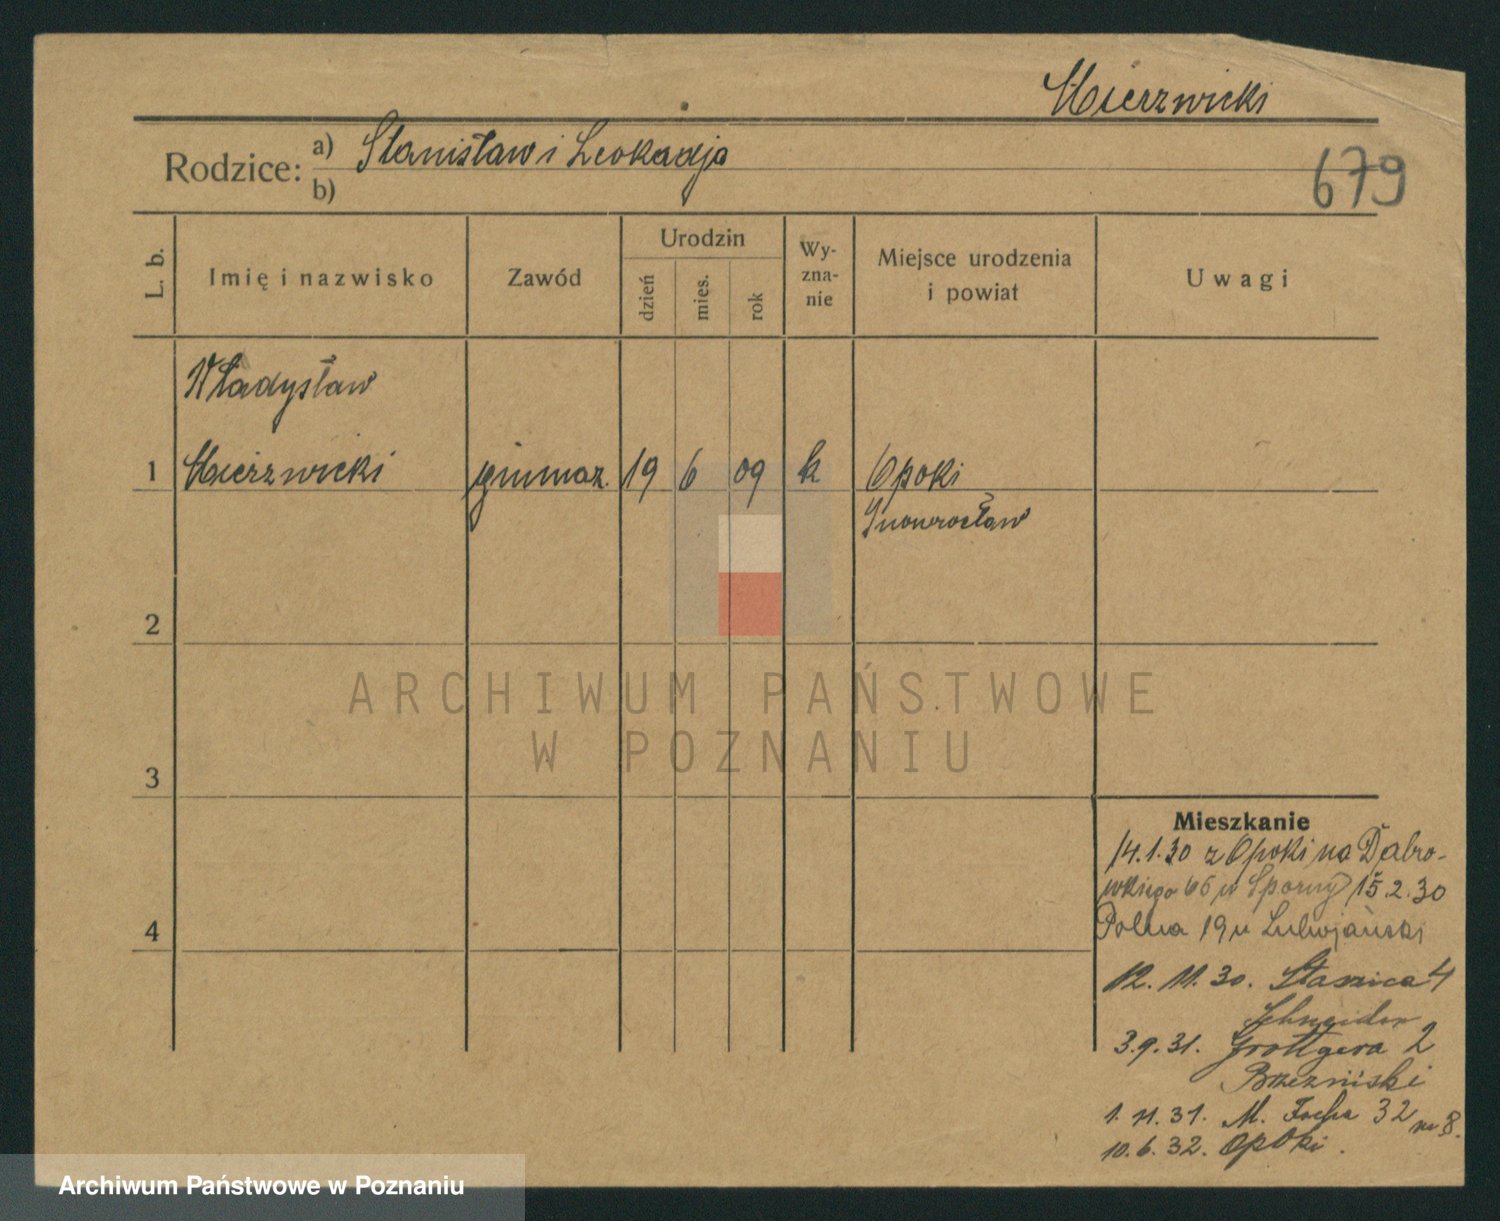 Mierzwicki
Rodzice: a) Stanisław i Leokadja
b)
679
L. b.
Imię i nazwisko
Zawód
Urodzin
dzień
mies.
rok
Wy-
zna-
nie
Miejsce urodzenia
i powiat
Uwagi
Władysław
1 Mierzwicki gimnaz. 19 6 09 k Opoki
Inowrocław
2
ARCHIWUM PAŃSTWOWE
W POZNANIU
3
4
Mieszkanie
14.1.30 z Opoki na Dąbro-
wskiego 66 u Sporny 15.2.30
Polna 19 u
12. 11. 30. Staszica 4
Schneider
3.9.31. Grottgera 2
1. 11. 31. M. Focha 32 m 8.
10. 6. 32. Opoki.
Archiwum Państwowe w Poznaniu